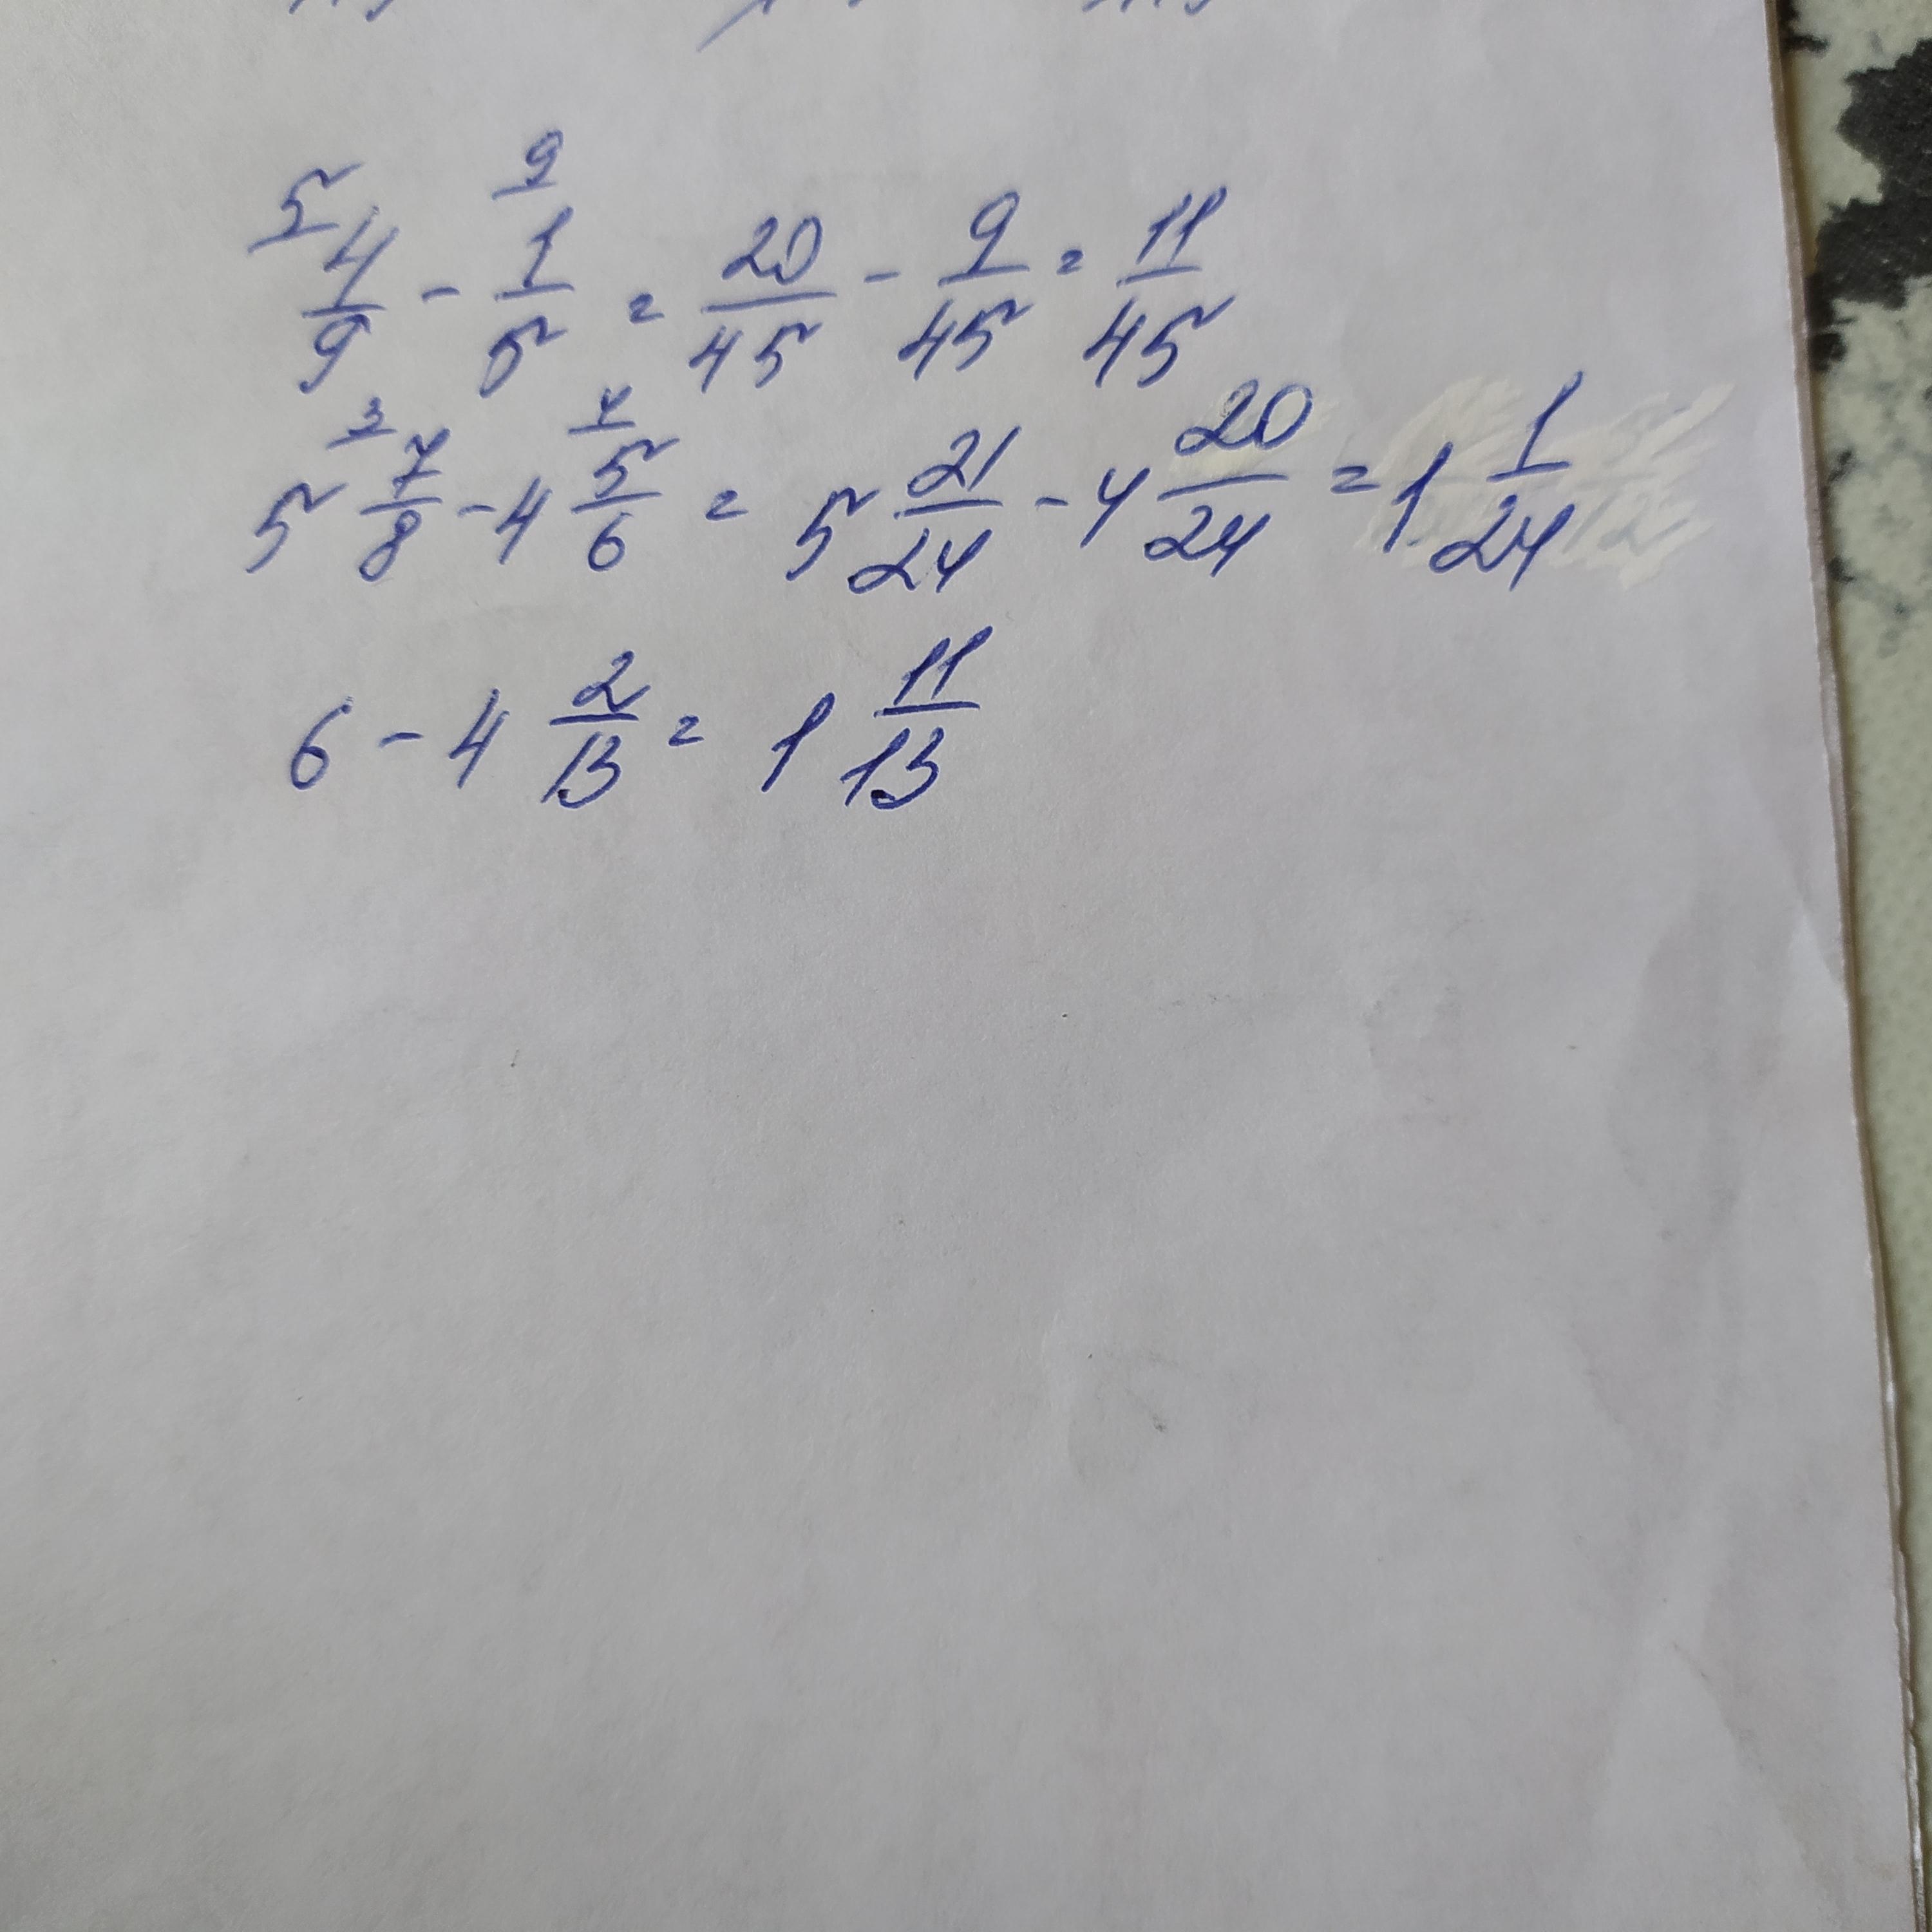 5 9
4/9 - 1/5 = 20/45 - 9/45 = 11/45
3 4
5 7/8 - 4 5/6 = 5 21/24 - 4 20/24 = 1 1/24
6 - 4 2/13 = 1 11/13